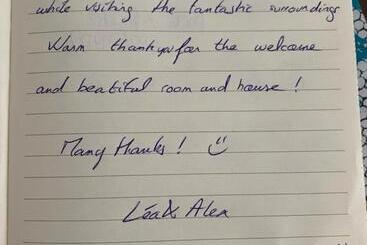 while visiting the fantastic surroundings
Warm thank you for the welcome
and beatiful room and house !
Many thanks ! ☺
Léa & Alex